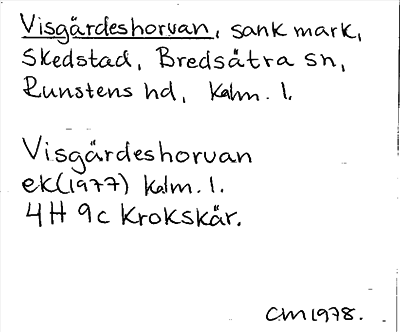 Visgärdeshorvan, sank mark,
Skedstad, Bredsätra sn,
Runstens hd, Kalm. l.
Visgärdeshorvan
ek(1977) Kalm. l.
4H 9c Krokskär.
CM 1978.